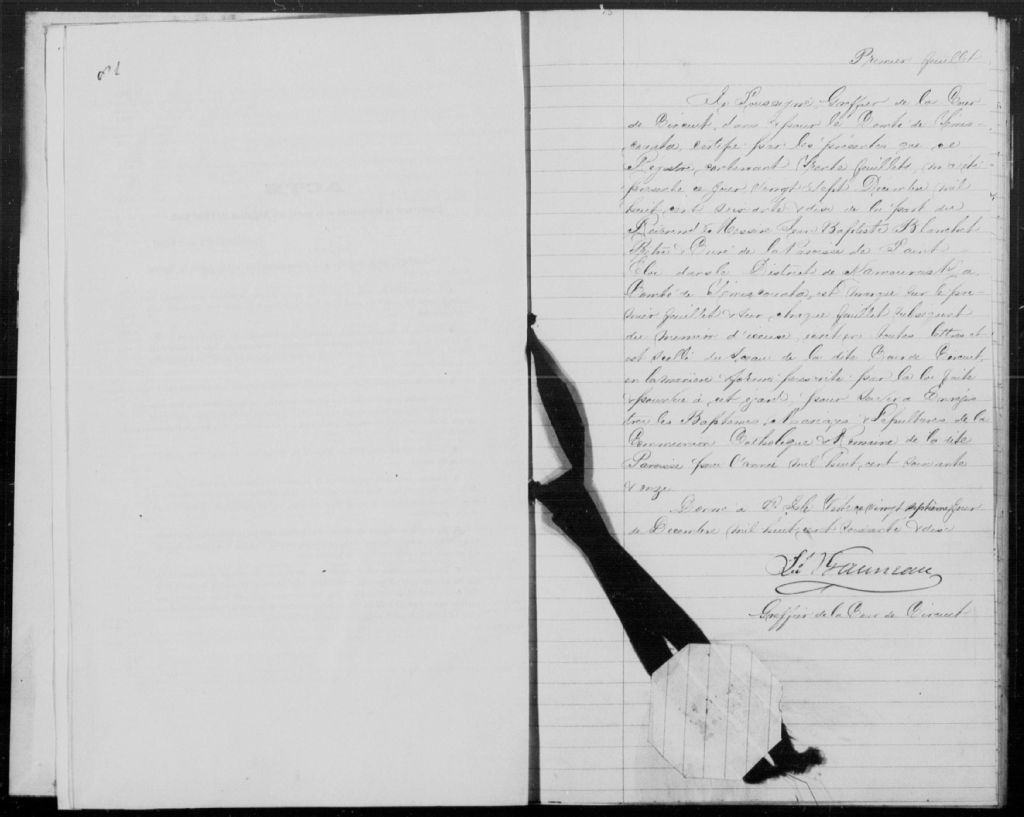 Premier feuillet
Je Soussigné, Greffier de la Cour
de Circuit, dans & pour le Comté de Témis-
couata, certifie par les présentes que ce
Registre, contenant trente feuillets, m'a été
présenté ce jour vingt Sept Décembre mil
huit cent soixante & dix de la part du
Révérend Messire Jean Baptiste Blanchet
Ptre & Curé de la Paroisse de Saint
Eloi dans le District de Kamouraska
Comté de Témiscouata, est marqué sur le pre-
mier feuillet & sur chaque feuillet subséquent
du numéro d'icelui, écrit en toutes lettres et
est scellé du Sceau de la dite Cour de Circuit,
en la manière & forme prescrite par la loi faite
& pourvue à cet égard, pour servir à Enregis
trer les Baptêmes, Mariages & Sépultures de la
Communion Catholique & Romaine de la dite
Paroisse pour l'année mil huit cent soixante
& onze
Donné à ce vingt septième jour
de Décembre mil huit cent soixante & dix
Greffier de la Cour de Circuit